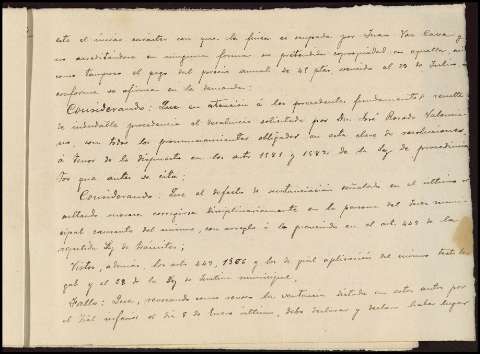 este el único caracter con que la finca es ocupada por Juan Vaz Cava y
no acreditándose en ninguna forma su pretendida copropiedad en aquella, asi
como tampoco el pago del precio anual de 45 ptas vencido al 29 de Julio,
conforme se afirma en la demanda:
Considerando: Que en atención á los precedentes fundamentos, resulta
de indudable procedencia el desahucio solicitado por Don José Rosado Valencia
no, con todos los pronunciamientos obligados en esta clase de resoluciones
á tenor de lo dispuesto en los arts 1581 y 1582 de la Ley de procedimien
tos que antes se cita:
Considerando: Que el defecto de sustanciación señalado en el último re
sultando merece corregirse disciplinariamente en la persona del Juez muni
cipal causante del mismo, con arreglo á lo prevenido en el art. 449 de la
repetida Ley de trámites;
Vistos, además, los arts 449, 1566 y los de gral aplicación del mismo texto le
gal y el 29 de la Ley de Justicia municipal.
Fallo: Que, revocando como revoco la sentencia dictada en estos autos por
el Tribl inferior el dia 8 de Enero último, debo declarar y declaro haber lugar